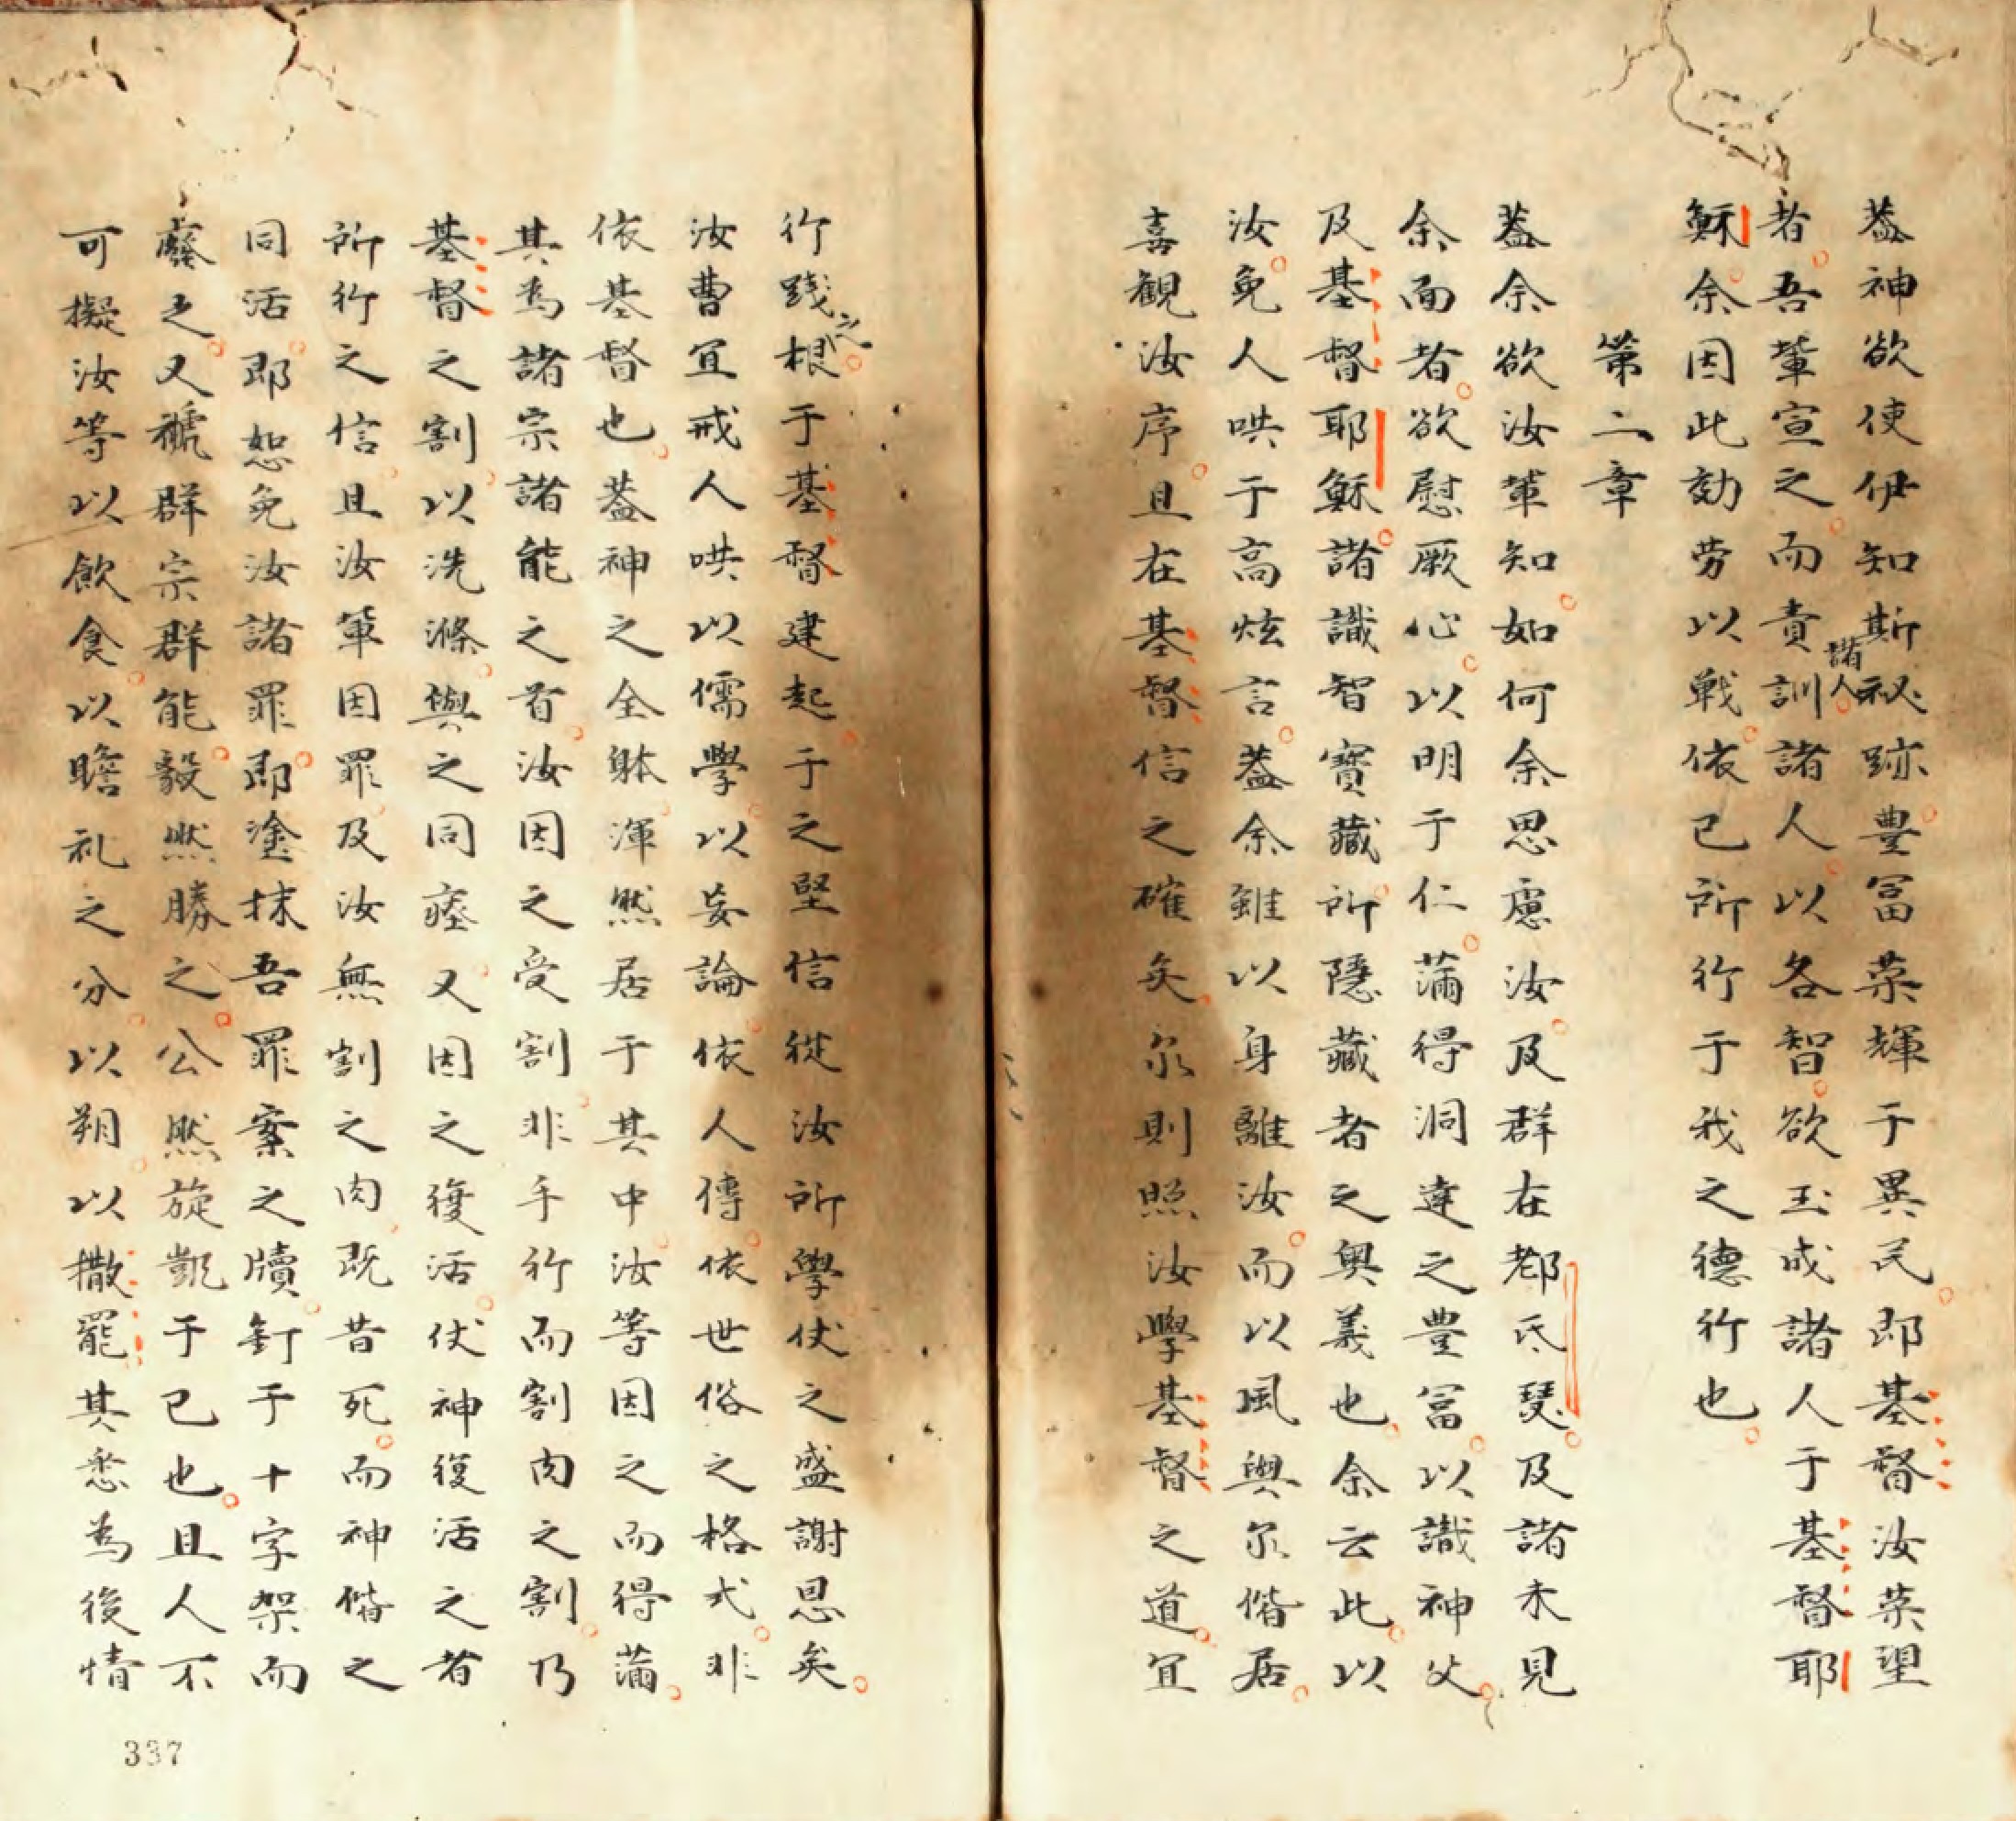 葢神欲使伊知斯祕跡豊冨荣輝于異民即基督汝荣望
者吾軰宣之而責訓諸人諸人以各智欲玉成諸人于基督耶
穌余因此劾劳以戦依已所行于我之德行也
第二章
葢余欲汝軰知如何余思慮汝及群在都氏瑟及諸未見
余面者欲慰厥心以明于仁蒲得洞達之豊冨以識神父
及基督耶穌諸識智寳藏所隱藏者之奥義也余云此以
汝免人哄于高炫言葢余雖以身離汝而以風與尔偕居
喜觀汝序且在基督信之確矣尔則照汝學基督之道宜
行踐之根于基督建起于之堅信従汝所學仗之盛謝恩矣
汝曹宜戒人哄以儒學以妄論依人傳依世俗之格式非
依基督也葢神之全躰渾然居于其中汝等因之而得蒲
其為諸宗諸能之首汝因之受割非手行而割肉之割乃
基督之割以洗滌與之同瘞又因之復活仗神復活之者
所行之信且汝軰因罪及汝無割之肉既昔死而神偕之
同活即恕免汝諸罪即塗抹吾罪案之牘釘于十字架而
廢之又褫群宗群能毅然勝之公然旋凱于已也且人不
可擬汝等以飲食以瞻礼之分以朔以撒罷其悉為後情
337